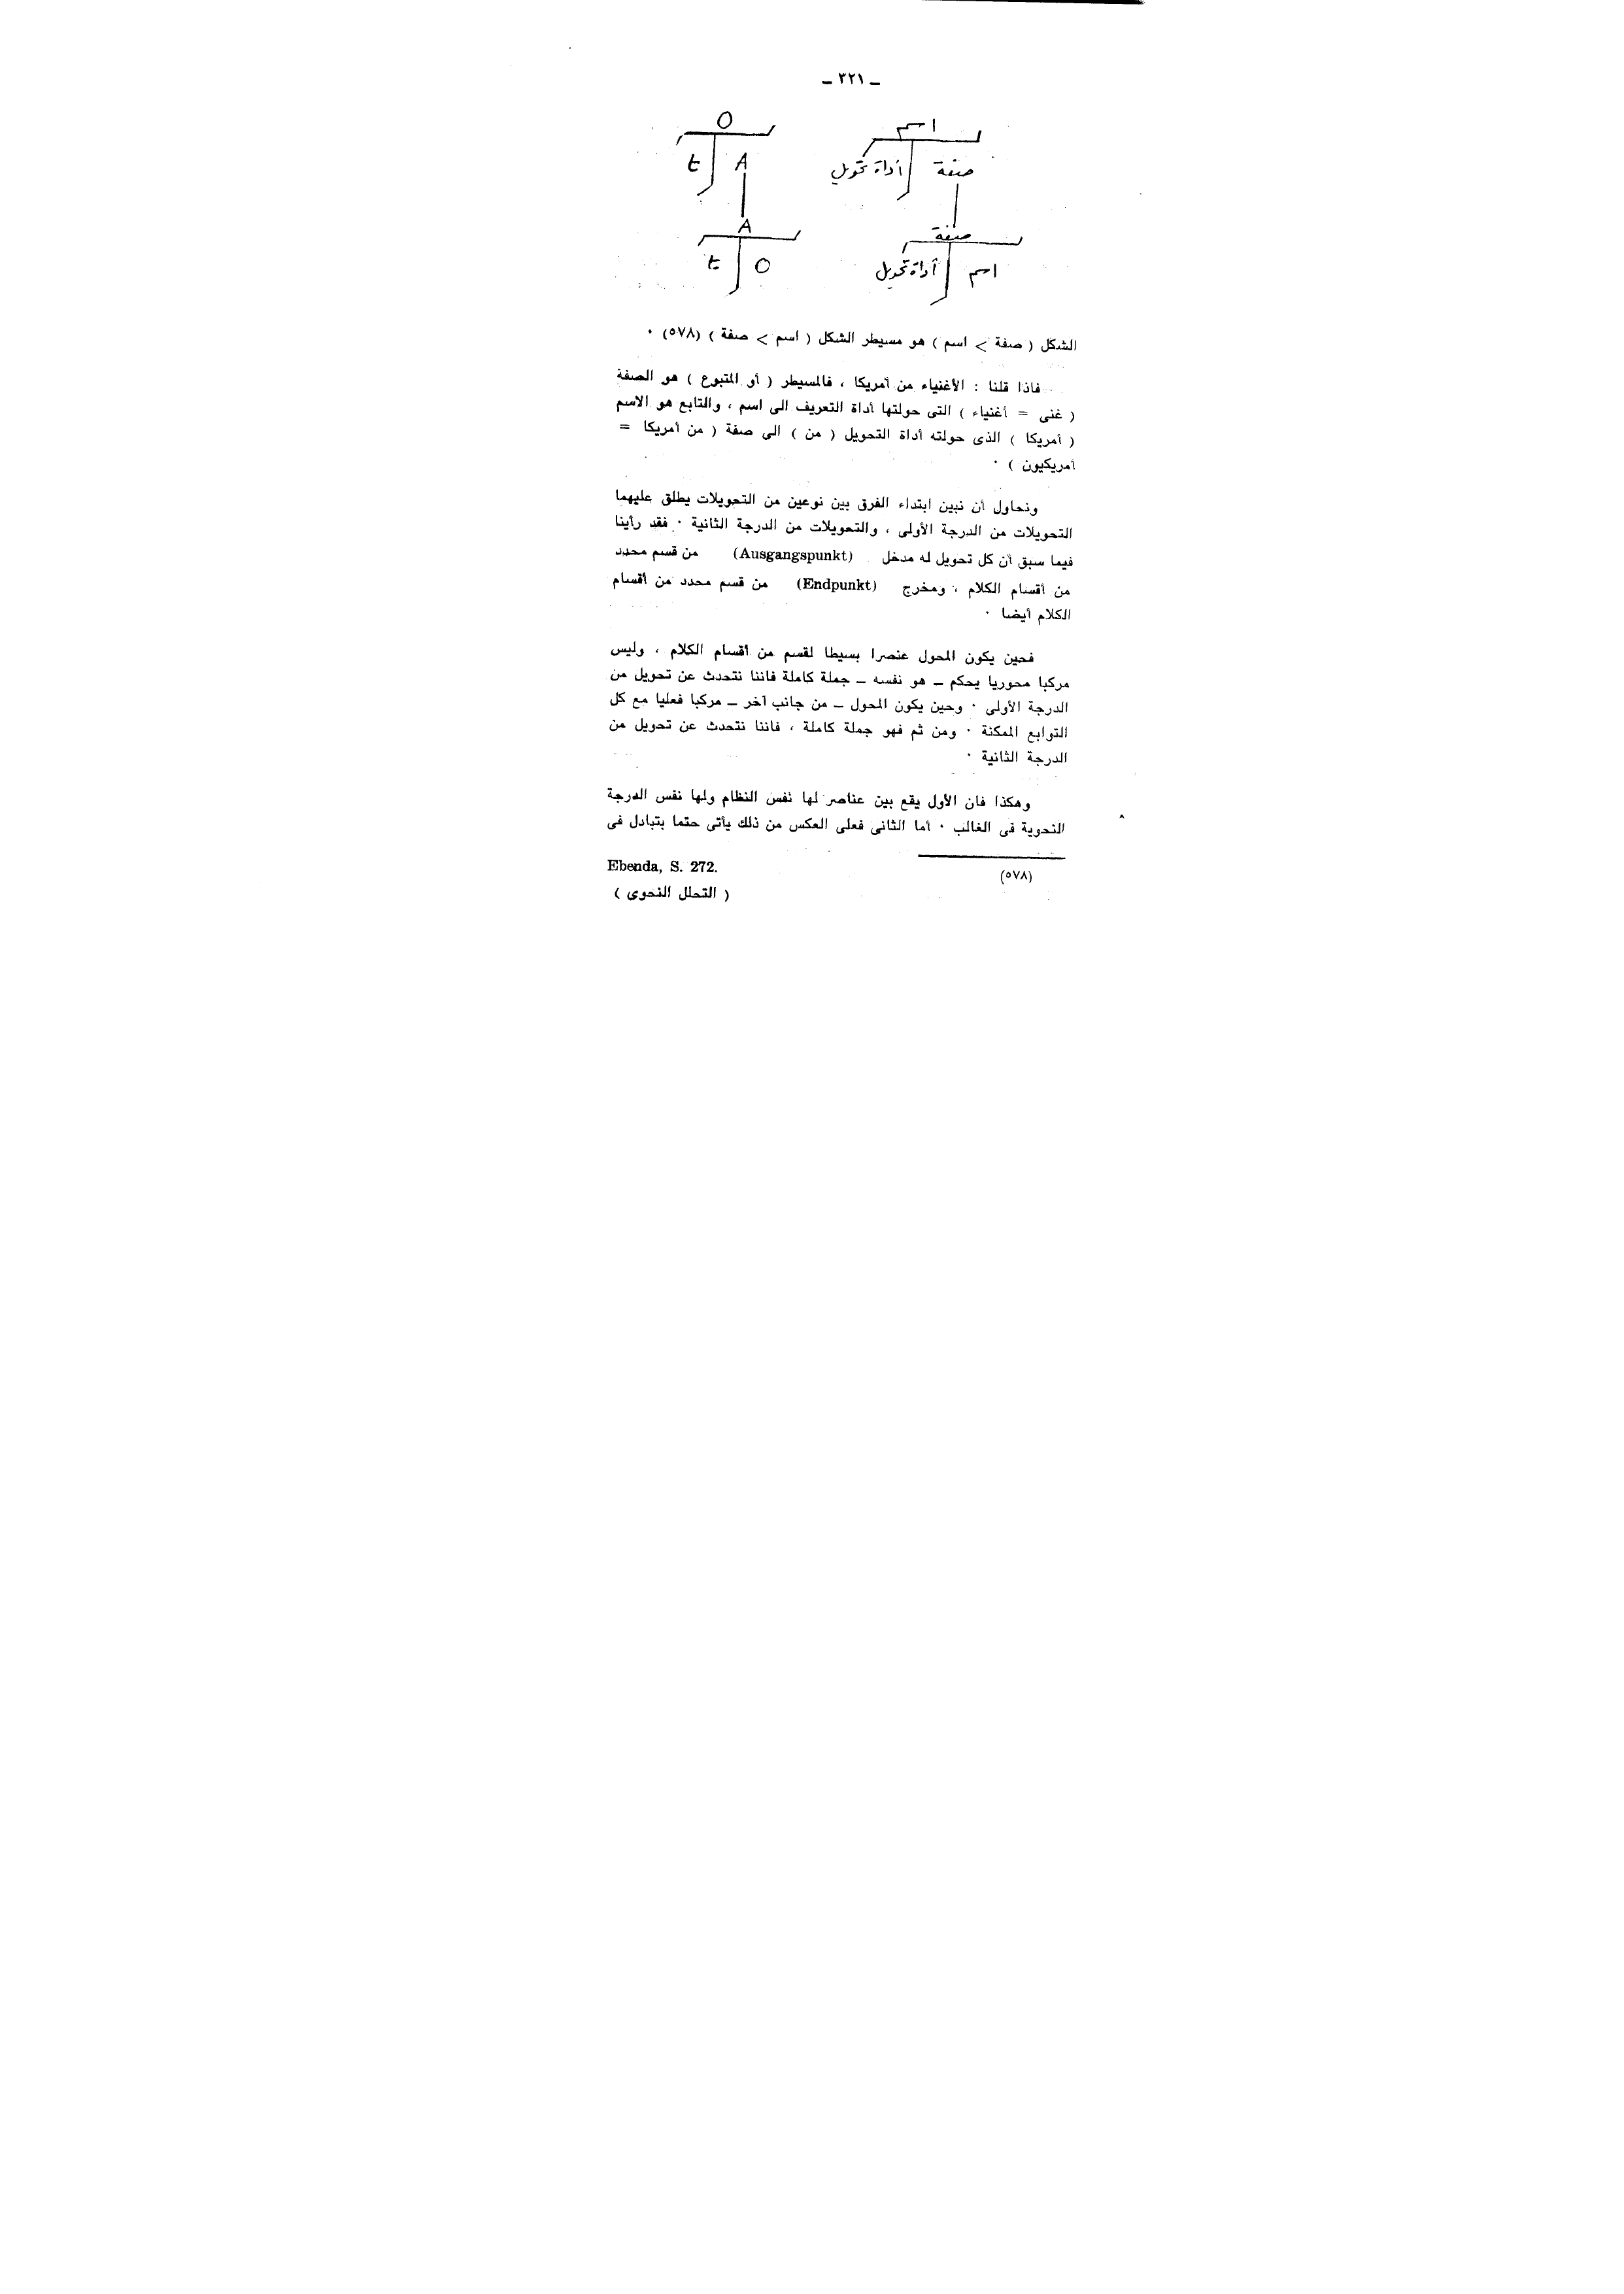 ـ ٣٢١ ـ
اسم
O
صفة
أداة تحويل
A
t
صفة
A
اسم
أداة تحويل
O
t
الشكل ( صفة > اسم ) هو مسيطر الشكل ( اسم > صفة ) (٥٧٨) ٠
فاذا قلنا : الأغنياء من أمريكا ، فالمسيطر ( أو المتبوع ) هو الصفة
( غنى = أغنياء ) التى حولتها أداة التعريف الى اسم ، والتابع هو الاسم
( أمريكا ) الذى حولته أداة التحويل ( من ) الى صفة ( من أمريكا =
أمريكيون ) ٠
ونحاول أن نبين ابتداء الفرق بين نوعين من التحويلات يطلق عليهما
التحويلات من الدرجة الأولى ، والتحويلات من الدرجة الثانية ٠ فقد رأينا
فيما سبق أن كل تحويل له مدخل (Ausgangspunkt) من قسم محدد
من أقسام الكلام ، ومخرج (Endpunkt) من قسم محدد من أقسام
الكلام أيضا ٠
فحين يكون المحول عنصرا بسيطا لقسم من أقسام الكلام ، وليس
مركبا محوريا يحكم ـ هو نفسه ـ جملة كاملة فاننا نتحدث عن تحويل من
الدرجة الأولى ٠ وحين يكون المحول ـ من جانب آخر ـ مركبا فعليا مع كل
التوابع الممكنة ٠ ومن ثم فهو جملة كاملة ، فاننا نتحدث عن تحويل من
الدرجة الثانية ٠
وهكذا فان الأول يقع بين عناصر لها نفس النظام ولها نفس الدرجة
النحوية فى الغالب ٠ أما الثانى فعلى العكس من ذلك يأتى حتما بتبادل فى
(٥٧٨) Ebenda, S. 272.
( التحلل النحوى )